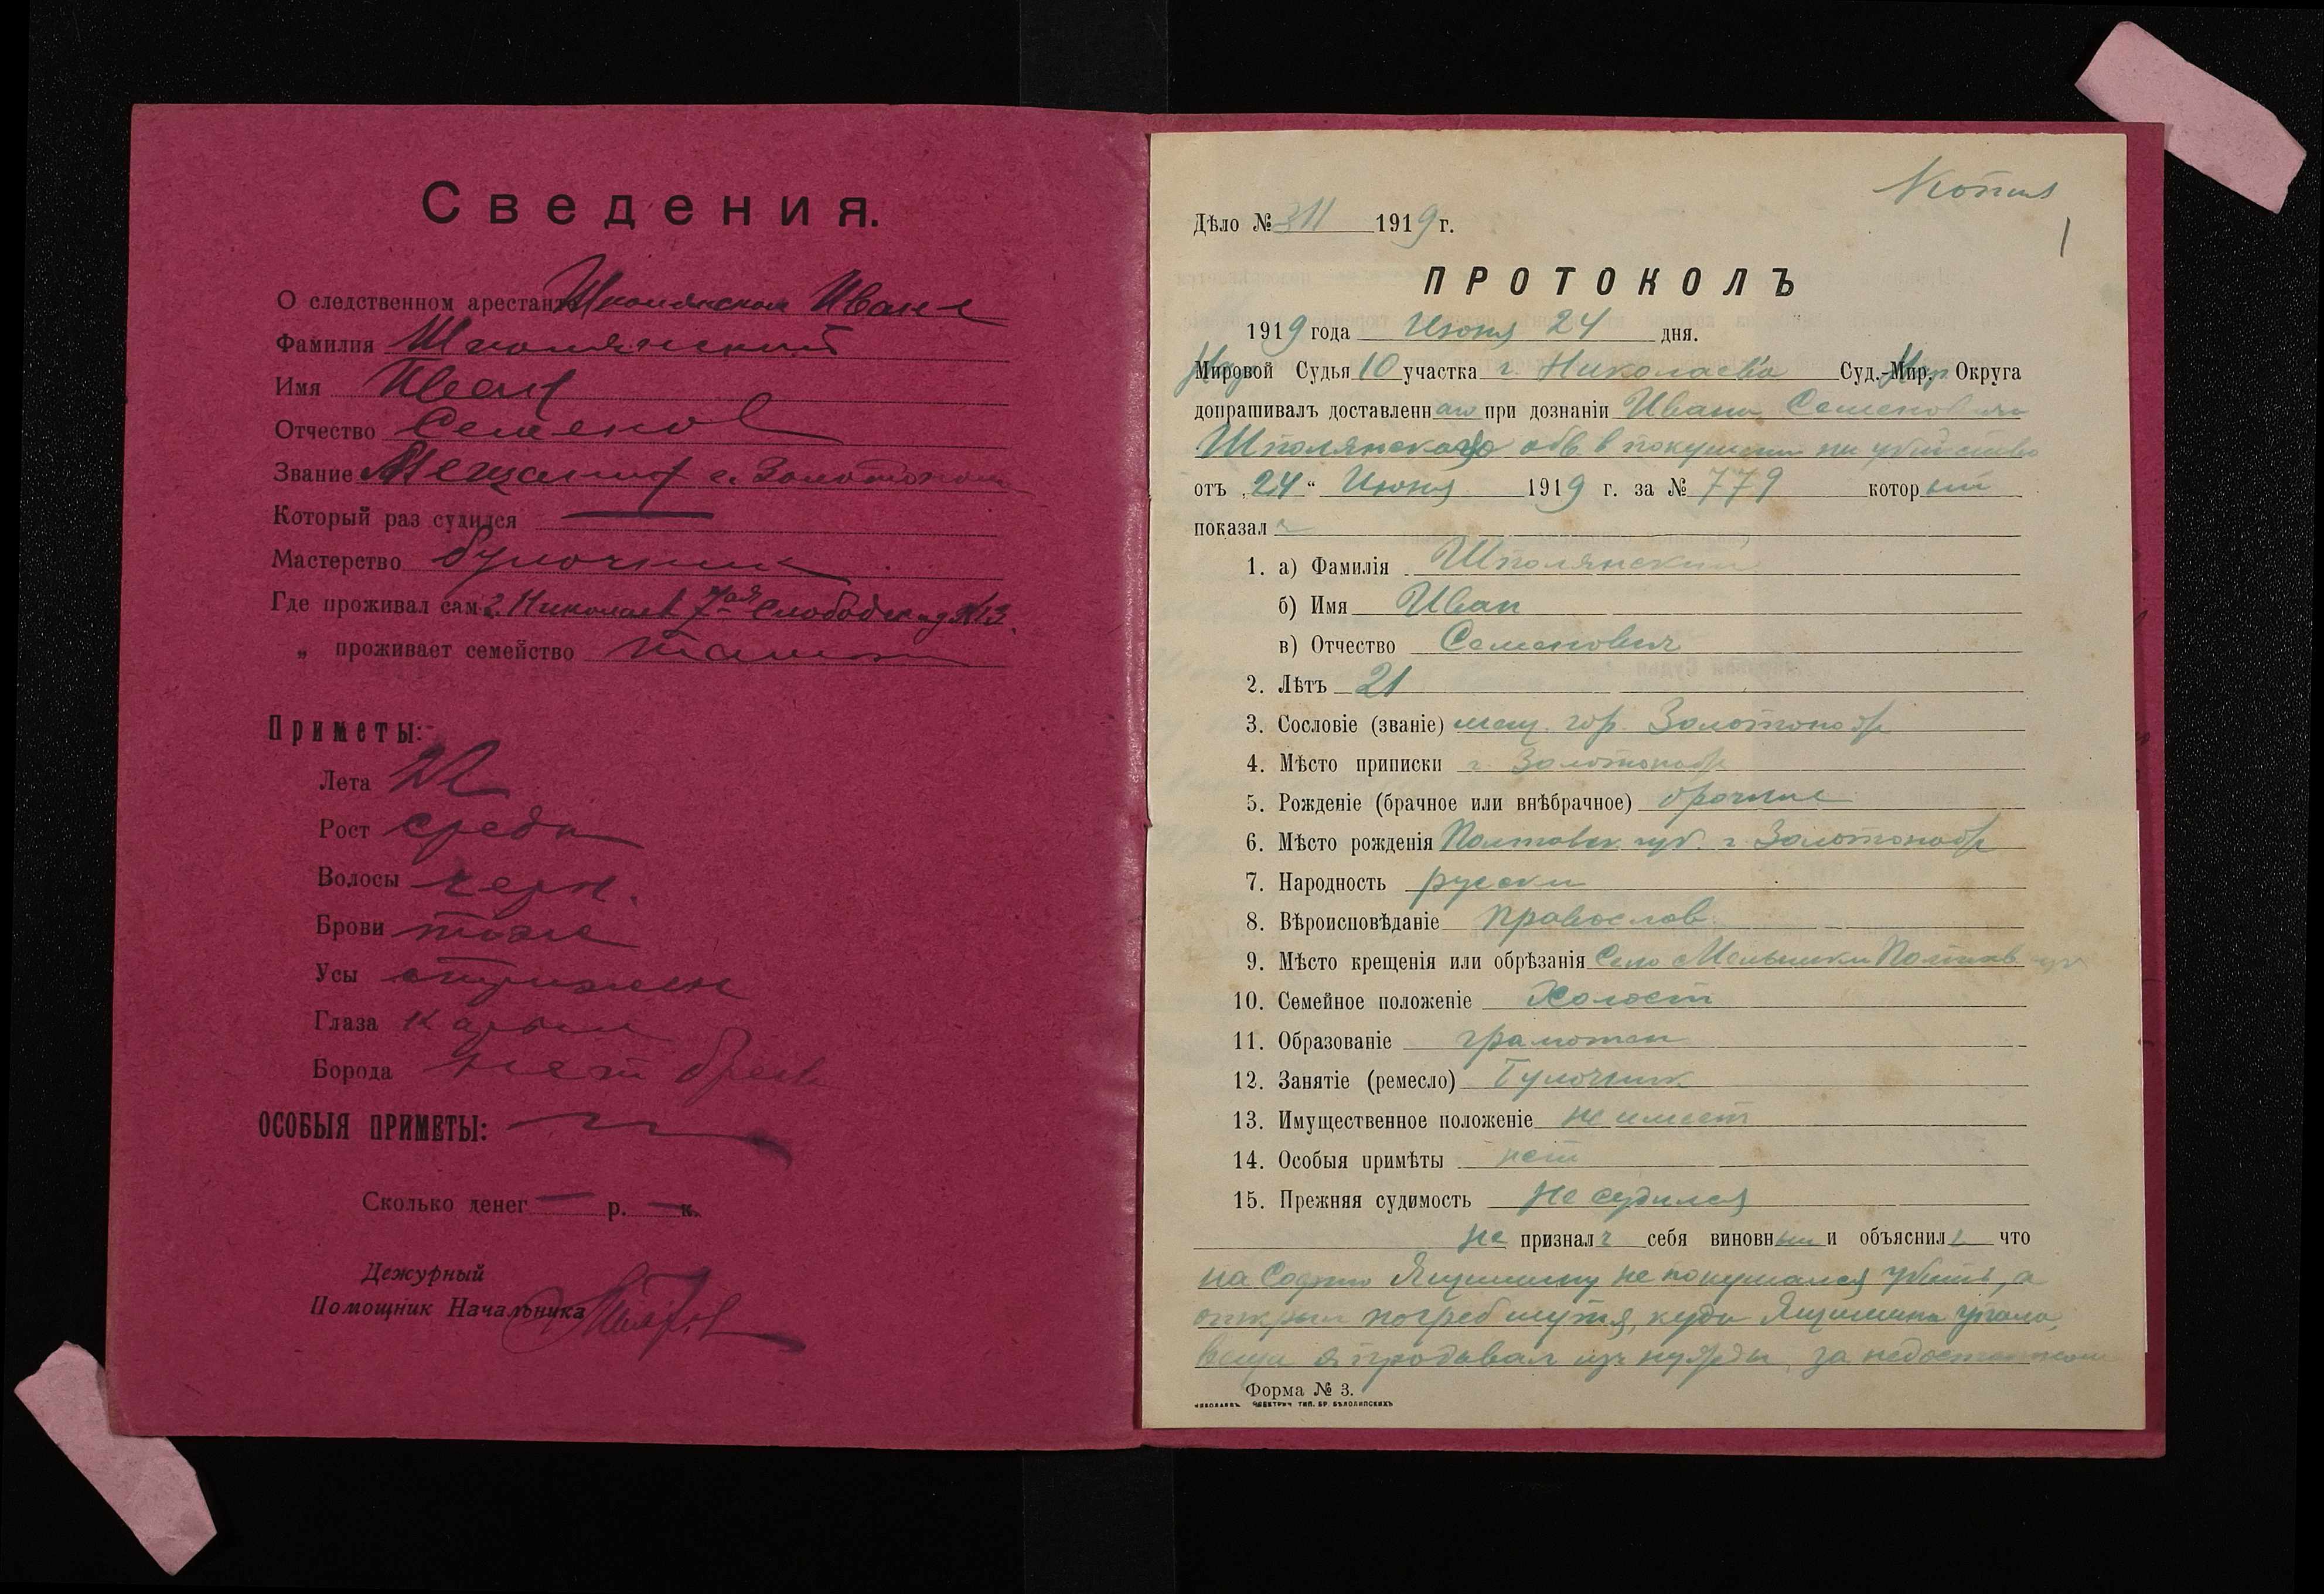 Сведения.
О следственном арестанте Шполянском Иване
Фамилия Шполянский
Имя Иван
Отчество Семенов
Звание Мещанин г. Золотоноши
Который раз судился —
Мастерство булочник
Где проживал сам г. Николаев 7ая Слободск. д № 13.
„ проживает семейство там же
Приметы:
Лета 22
Рост средн
Волосы черн.
Брови тоже
Усы стрижен
Глаза карые
Борода нет
ОСОБЫЯ ПРИМЕТЫ:
Сколько денег — р. — к.
Дежурный
Помощник Начальника
Копия
1
Дѣло № 311 1919 г.
ПРОТОКОЛЪ
1919 года Июня 24 дня.
Мировой Судья 10 участка г. Николаева Суд.-Мир. Округа
допрашивалъ доставленнаго при дознаніи Ивана Семеновича
Шполянскаго обв. в покушении на убийство
отъ „24“ Июня 1919 г. за № 779 который
показал
1. а) Фамилія Шполянский
б) Имя Иван
в) Отчество Семенович
2. Лѣтъ 21
3. Сословіе (званіе) мещ. гор. Золотоноши
4. Мѣсто приписки г. Золотоноши
5. Рожденіе (брачное или внѣбрачное) брачное
6. Мѣсто рожденія Полтавск. губ. г. Золотоноши
7. Народность русский
8. Вѣроисповѣданіе православ.
9. Мѣсто крещенія или обрѣзанія Село Мельники Полтав. гу
10. Семейное положеніе Холост
11. Образованіе грамотен
12. Занятіе (ремесло) Булочник
13. Имущественное положеніе не имеет
14. Особыя примѣты нет
15. Прежняя судимость Не судился
не призналъ себя виновным и объяснил что
на Софию Ящишину не покушался убить, а
открыл погреб шутя, куда Ящишина упала,
вещи я продавал из нужды, за недостатком
Форма № 3.
НИКОЛАЕВЪ. ЭЛЕКТРИЧ. ТИП. БР. БѢЛОЛИПСКИХЪ